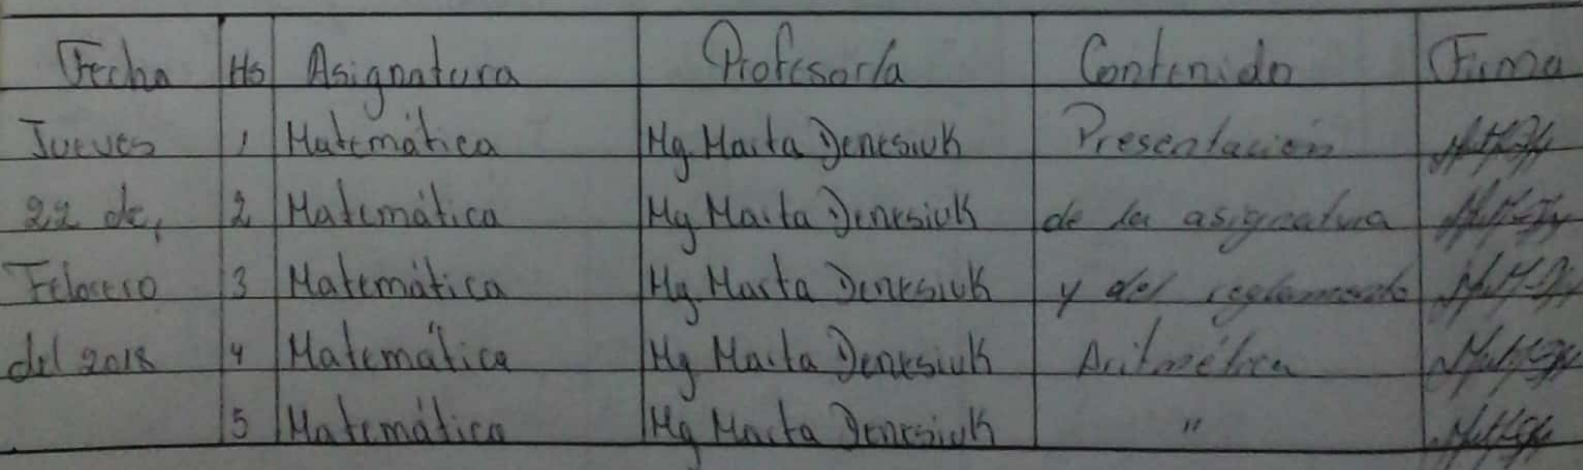 Fecha Hs Asignatura Profesor/a Contenido Firma
Jueves 1 Matemática Mg. Marta Denesiuk Presentación
22 de, 2 Matemática Mg Marta Denesiuk de la asignatura
Febrero 3 Matemática Mg. Marta Denesiuk y del reglamento
del 2018 4 Matemática Mg Marta Denesiuk Aritmética
5 Matemática Mg Marta Denesiuk "